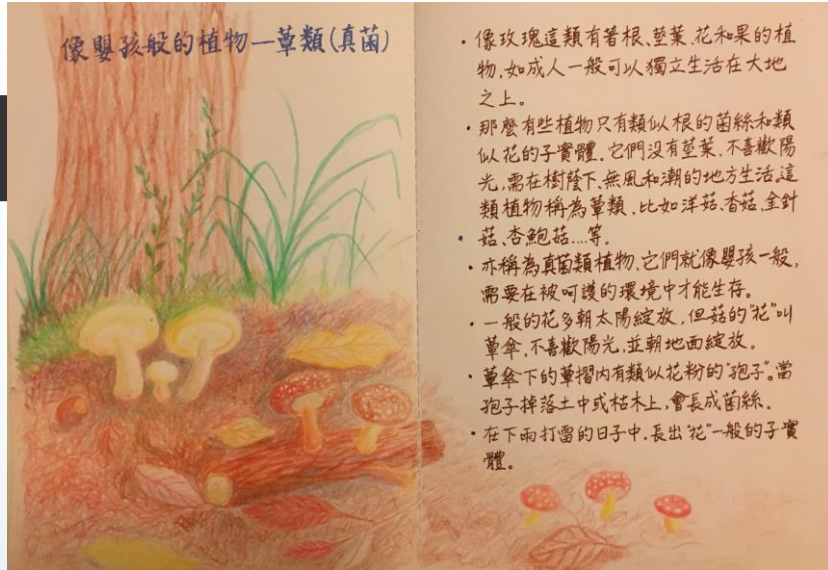 像嬰孩般的植物—蕈類(真菌)
· 像玫瑰這類有著根、莖葉、花和果的植
物,如成人一般可以獨立生活在大地
之上。
· 那麼有些植物只有類似根的菌絲和類
似花的子實體。它們沒有莖葉、不喜歡陽
光,需在樹蔭下、無風和潮的地方生活。這
類植物稱為蕈類,比如洋菇、香菇、金針
菇、杏鮑菇....等。
· 亦稱為真菌類植物,它們就像嬰孩一般,
需要在被呵護的環境中才能生存。
· 一般的花多朝太陽綻放,但菇的"花"叫
蕈傘,不喜歡陽光,並朝地面綻放。
· 蕈傘下的蕈摺內有類似花粉的"孢子"。當
孢子掉落土中或枯木上,會長成菌絲。
· 在下雨打雷的日子中,長出"花"一般的子實
體。